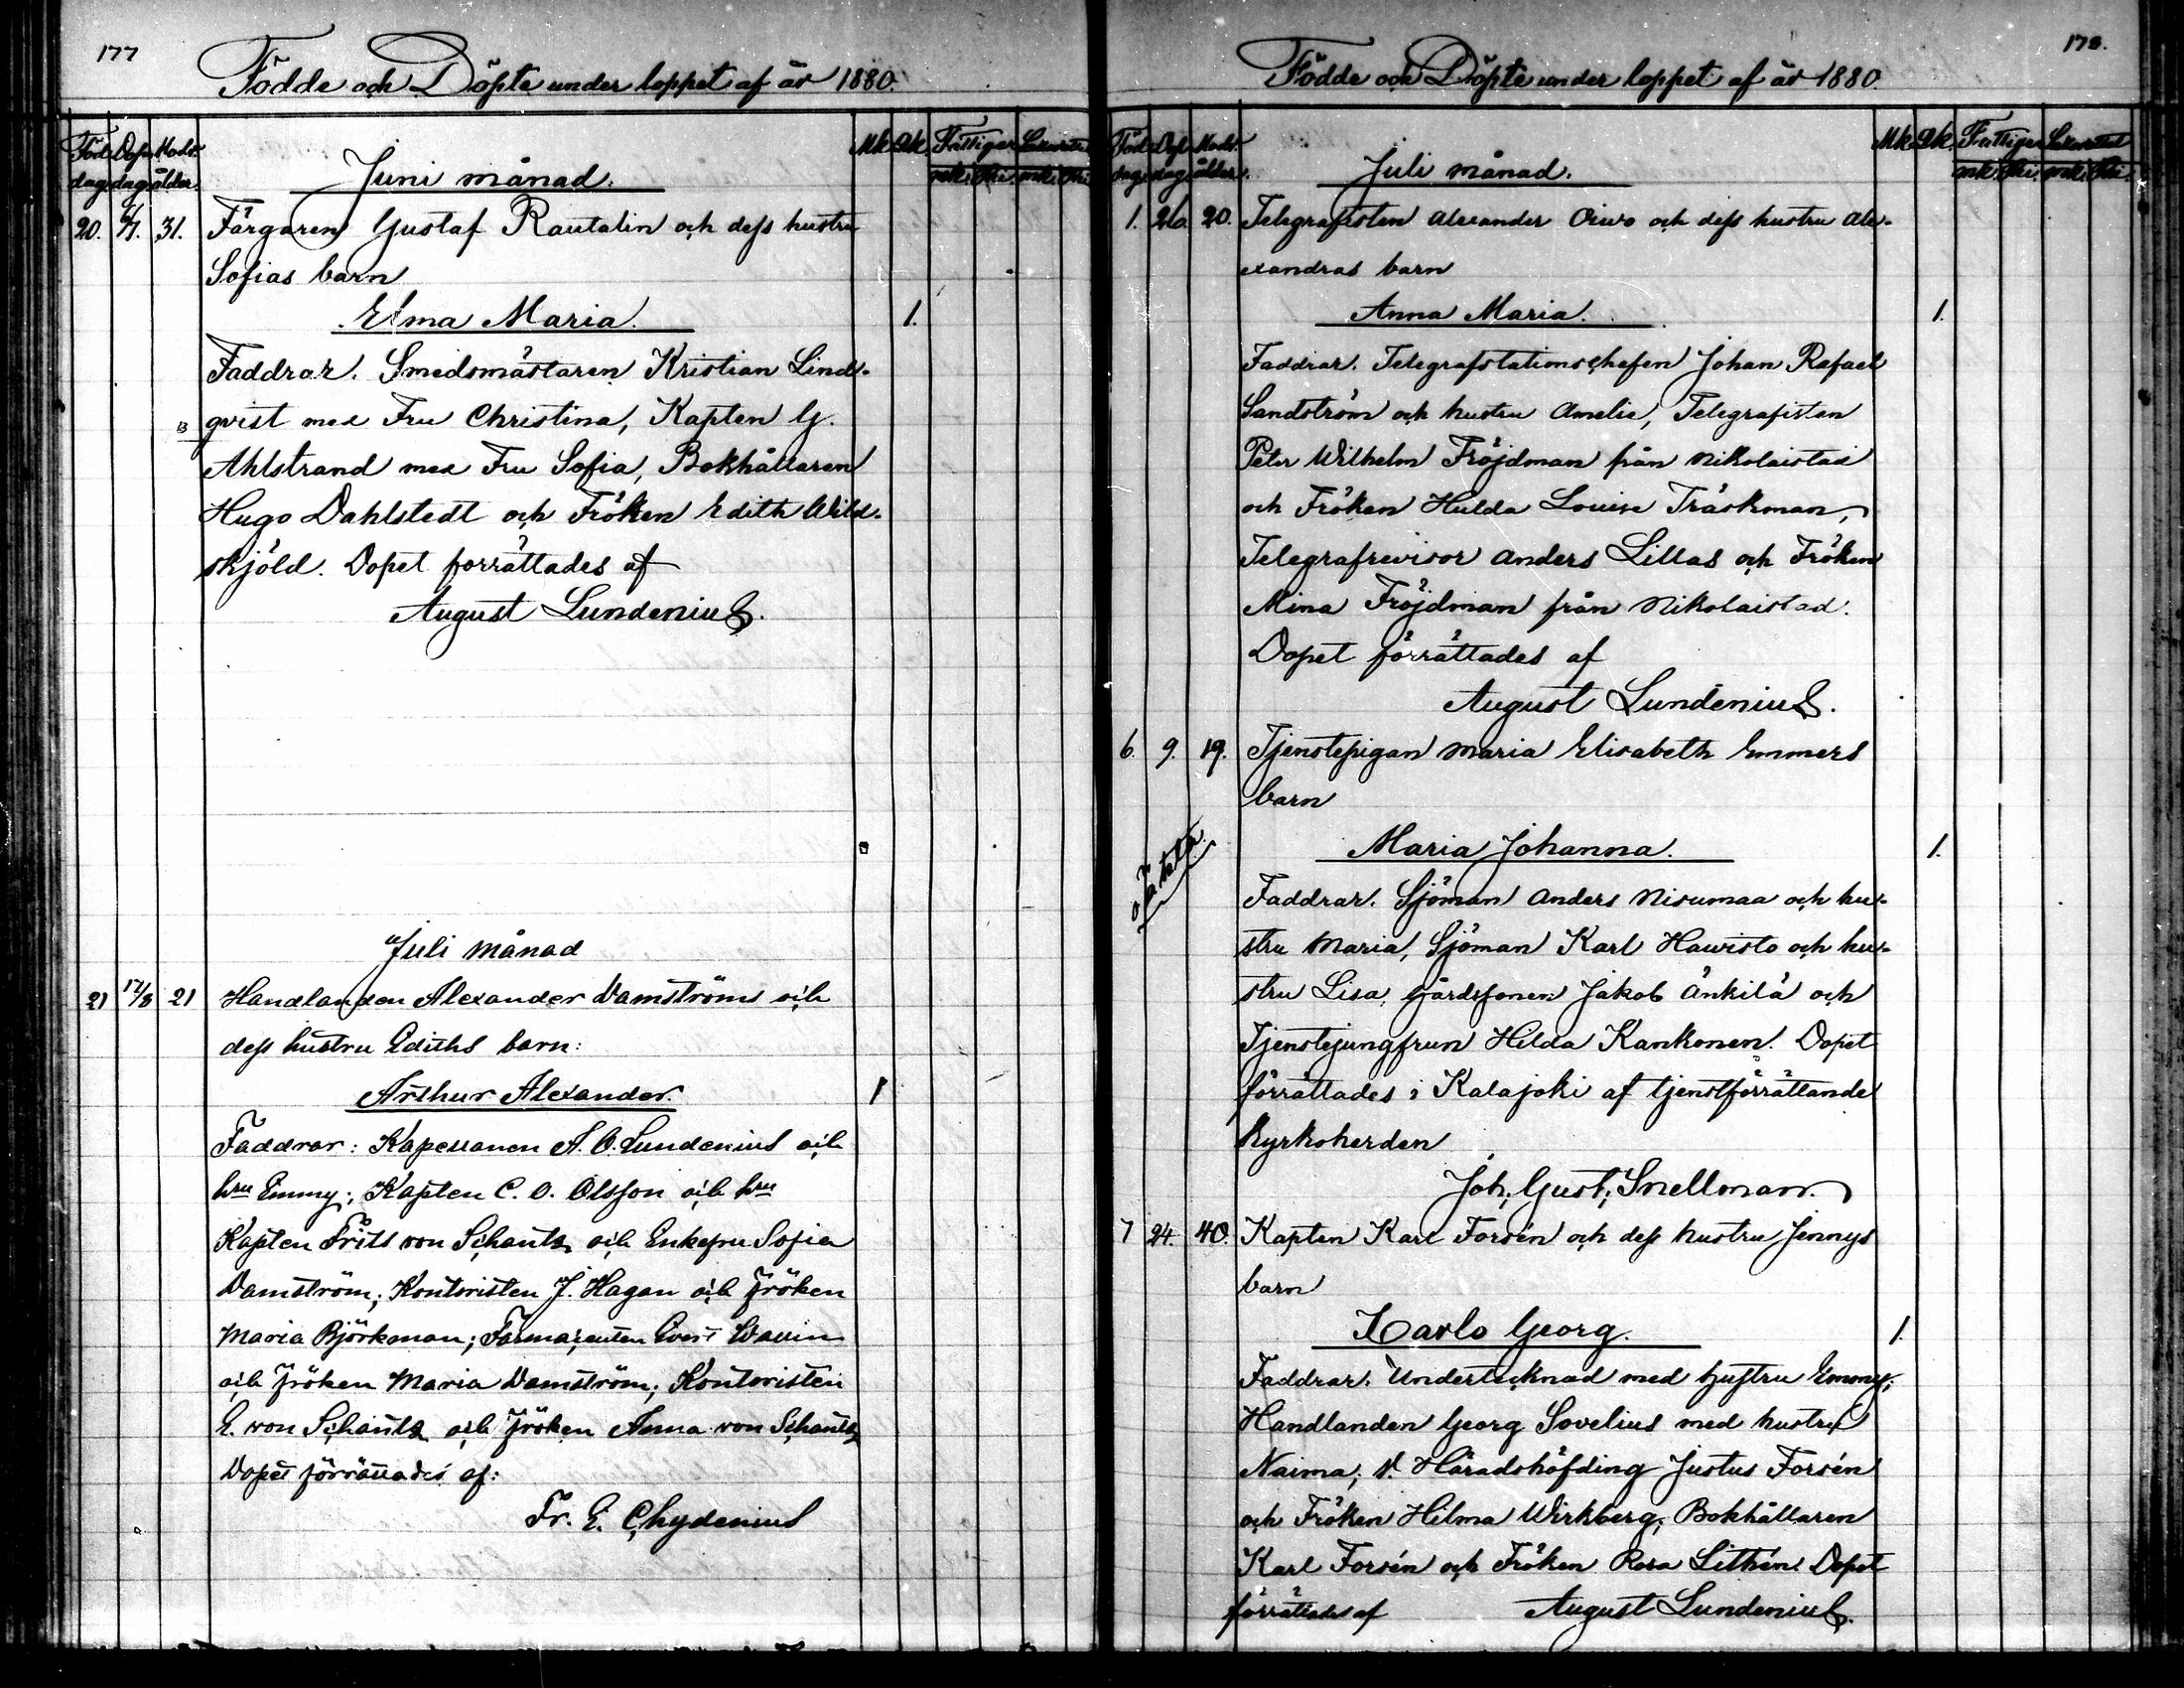 177
Födde och Döpte under loppet af år 1880.
Föd. Dop. Modr. Mk. Qk. Fattiga
dag. dag. ålder. mk. mk.
Juni månad.
20. 31. Färgaren Gustaf Rautalin och dess hustru
Sofias barn
Elma Maria. 1.
Faddrar. Smedsmästaren Kristian Lind-
qvist med Fru Christina, Kapten G.
Ahlstrand med Fru Sofia, Bokhållaren
Hugo Dahlstedt och Fröken Edith Wild-
skjöld. Dopet förrättades af
August Lundenius.
Juli månad
21 12/8 21 Handlanden Alexander Damströms och
dess hustru Ediths barn:
Arthur Alexander. 1
Faddrar: Kapellanen A. O. Lundenius och
hru Emmy; Kapten C. O. Olsson och hru
Kapten Frits von Schantz och Enkefru Sofia
Damström; Kontoristen J. Hagan och fröken
Maria Björkman; Farmaceuten Evert
och fröken Maria Damström; Kontoristen
E. von Schantz och fröken Anna von Schantz
Dopet förrättades af:
Fr. E. Chydenius
178.
Födde och Döpte under loppet af år 1880.
Föd. Dop. Modr. Mk. Qk. Fattiga
dag. dag. ålder. mk. mk.
Juli månad.
1. 26. 20. Telegrafisten Alexander Oiwo och dess hustru Ale-
xandras barn
Anna Maria. 1.
Faddrar. Telegrafstationschefen Johan Rafael
Sandström och hustru Amelie, Telegrafisten
Peter Wilhelm Fröjdman från Nikolaistad
och Fröken Hulda Louise Träskman,
Telegrafrevisor Anders Lillas och Fröken
Mina Fröjdman från Nikolaistad.
Dopet förrättades af
August Lundenius.
6. 9. 19. Tjenstepigan Maria Elisabeth Emmers
barn
oäkta.
Maria Johanna. 1.
Faddrar. Sjöman Anders Nisumaa och hu-
stru Maria, Sjöman Karl Hawisto och hu-
stru Lisa, gårdssonen Jakob Änkilä och
Tjenstejungfrun Hilda Kankonen. Dopet
förrättades i Kalajoki af tjenstförrättande
Kyrkoherden
Joh. Gust. Snellman.
7 24. 40. Kapten Karl Forsén och dess hustru Jennys
barn
Karlo Georg. 1.
Faddrar. Undertecknad med hustru Emmy;
Handlanden Georg Sovelius med hustru
Naima; v. Häradshöfding Justus Forsén
och Fröken Hilma Wirkberg; Bokhållaren
Karl Forsén och Fröken Rosa Lithén. Dopet
förrättades af August Lundenius.